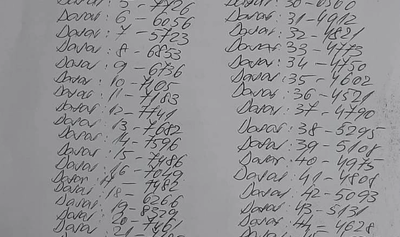 Davar : 5 - 7726
Davar : 6 - 6056
Davar : 7 - 5723
Davar : 8 - 6853
Davar : 9 - 6756
Davar : 10 - 7405
Davar : 11 - 7183
Davar : 12 - 7741
Davar : 13 - 7682
Davar : 14 - 7596
Davar : 15 - 7486
Davar : 16 - 7049
Davar : 17 - 7982
Davar : 18 - 6266
Davar : 19 - 8529
Davar : 20 - 7461
Davar : 21 -
Davar : 30 -
Davar : 31 - 4912
Davar : 32 - 4821
Davar : 33 - 4773
Davar : 34 - 4750
Davar : 35 - 4602
Davar : 36 - 4521
Davar : 37 - 4790
Davar : 38 - 5295
Davar : 39 - 5108
Davar : 40 - 4975
Davar : 41 - 4808
Davar : 42 - 5093
Davar : 43 - 5131
Davar : 44 - 4628